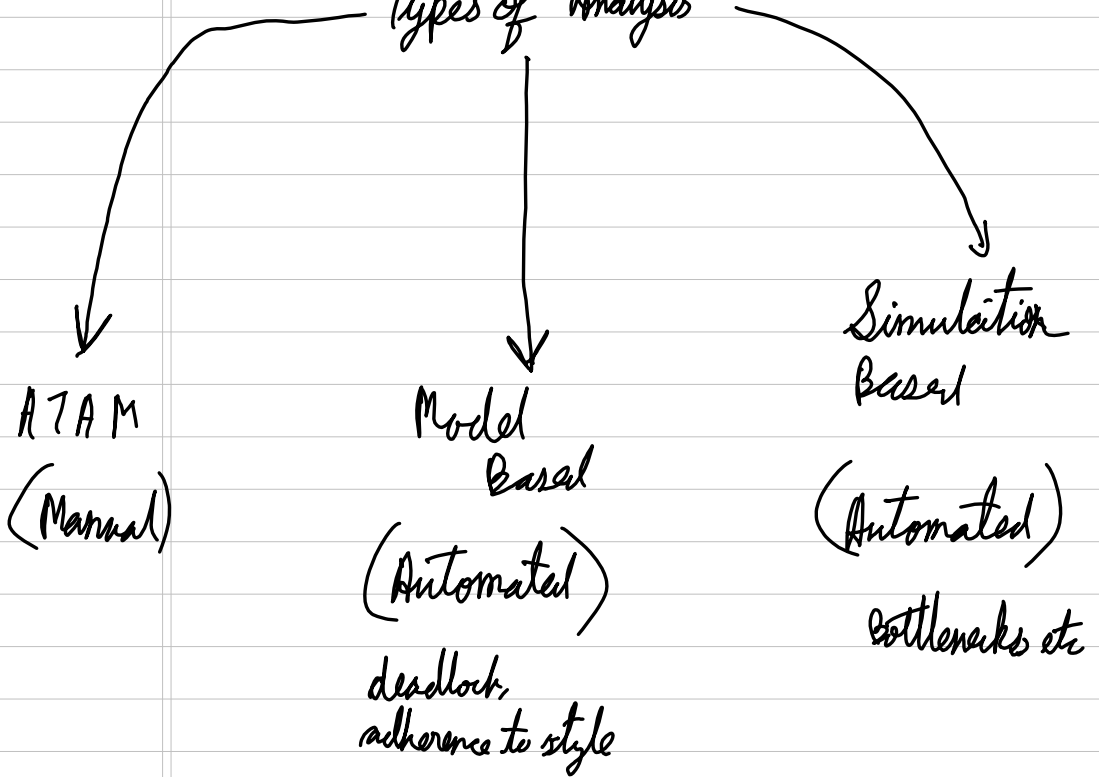 Types of Analysis
ATAM
(Manual)
Model
Based
(Automated)
deadlock,
adherence to style
Simulation
Based
(Automated)
Bottlenecks etc